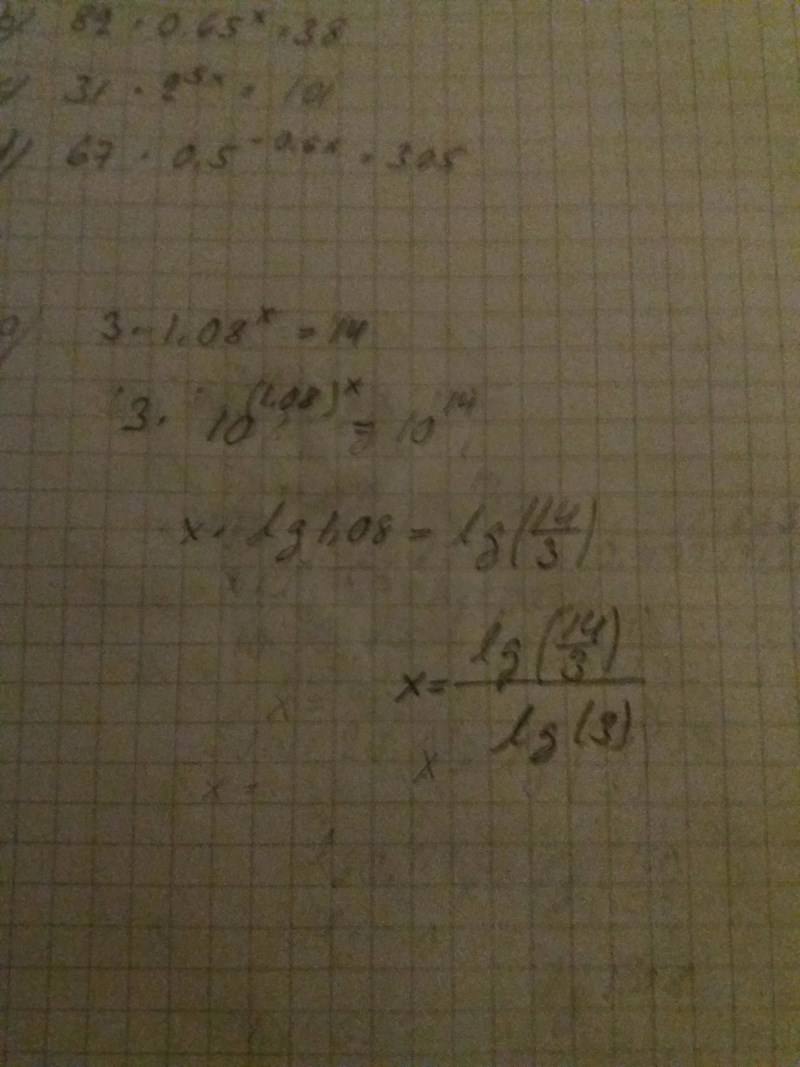 82 · 0.65^x = 38
31 · 2^5x = 101
67 · 0,5^-0.6x = 305
3 · 1.08^x = 14
3 · 10^(1.08)^x = 10^14
x · lg 1,08 = lg(14/3)
x = lg(14/3) / lg(3)
x
x =
x =